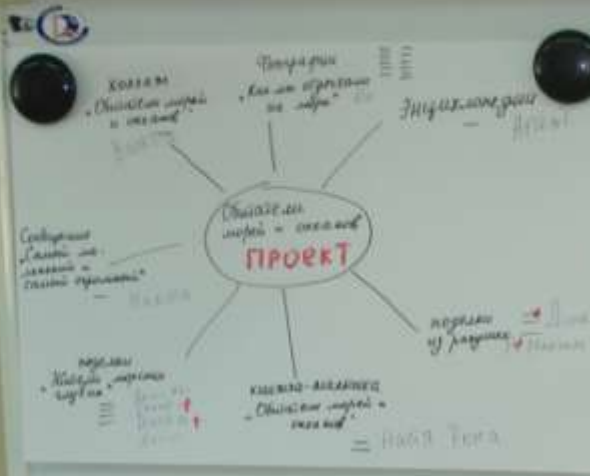 коллаж
„Обитатели морей
и океанов"
Фотографии
„Как мы отдыхали
на море"
Энциклопедии
Обитатели
морей и океанов
ПРОЕКТ
Сообщение
„Самый ма-
ленький и
самый огромный"
Никита
поделки
из ракушек
поделки
„Жители морских
глубин"
книжка-малышка
„Обитатели морей и
океанов"
Настя Рома